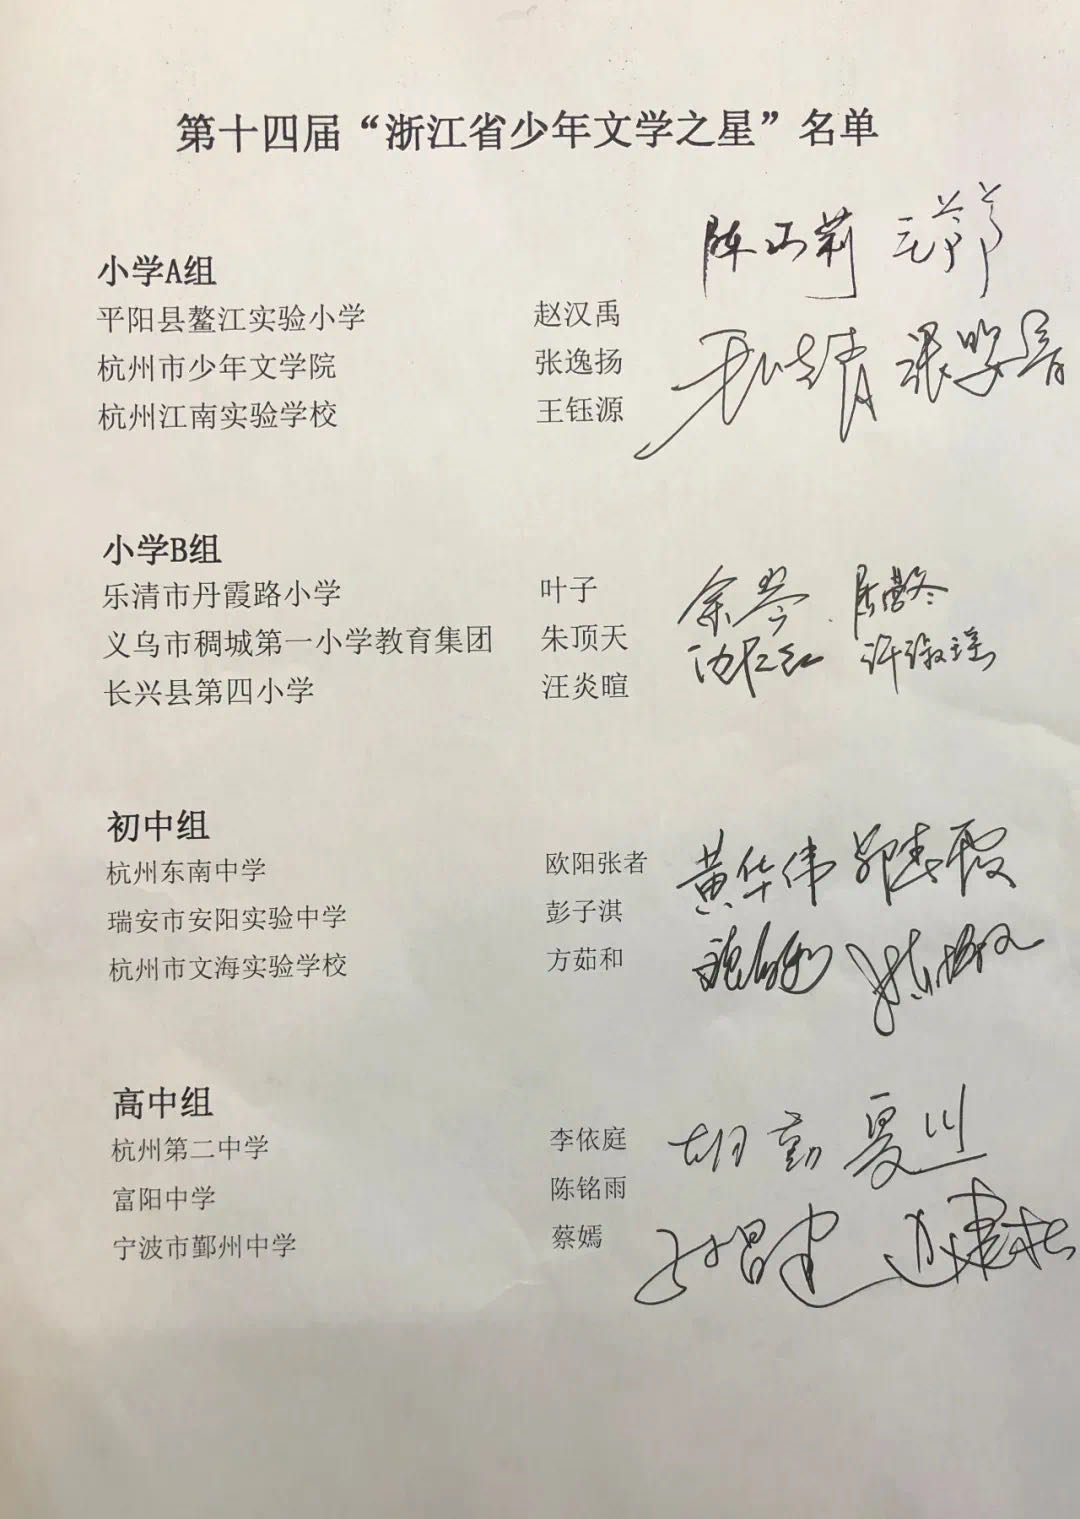 第十四届“浙江省少年文学之星”名单
小学A组
平阳县鳌江实验小学 赵汉禹
杭州市少年文学院 张逸扬
杭州江南实验学校 王钰源
小学B组
乐清市丹霞路小学 叶子
义乌市稠城第一小学教育集团 朱顶天
长兴县第四小学 汪炎暄
余岑
沈仁红 许淑瑶
初中组
杭州东南中学 欧阳张者
瑞安市安阳实验中学 彭子淇
杭州市文海实验学校 方茹和
黄华伟
高中组
杭州第二中学 李依庭
富阳中学 陈铭雨
宁波市鄞州中学 蔡嫣
胡勤 夏川
孙昌建 赵建松